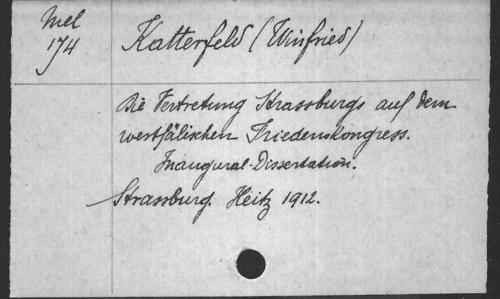 Mel
174
Katterfeld (Winfried)
Die Vertretung Strassburgs auf dem
westfälischen Friedenskongress.
Inaugural-Dissertation.
Strassburg. Heitz 1912.